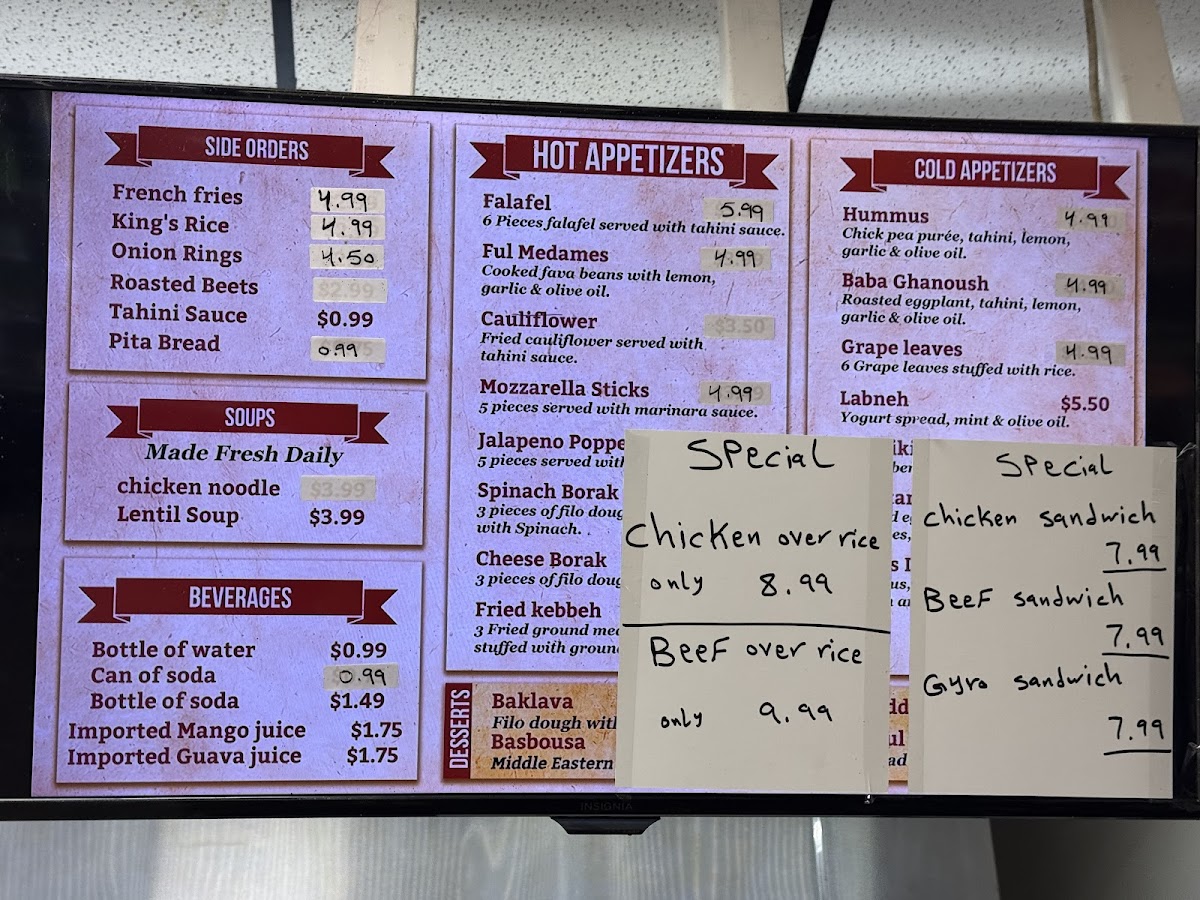 SIDE ORDERS
French fries 4.99
King's Rice 4.99
Onion Rings 4.50
Roasted Beets $2.99
Tahini Sauce $0.99
Pita Bread 0.99
SOUPS
Made Fresh Daily
chicken noodle $3.99
Lentil Soup $3.99
BEVERAGES
Bottle of water $0.99
Can of soda 0.99
Bottle of soda $1.49
Imported Mango juice $1.75
Imported Guava juice $1.75
HOT APPETIZERS
Falafel 5.99
6 Pieces falafel served with tahini sauce.
Ful Medames 4.99
Cooked fava beans with lemon,
garlic & olive oil.
Cauliflower $3.50
Fried cauliflower served with
tahini sauce.
Mozzarella Sticks 4.99
5 pieces served with marinara sauce.
Jalapeno Poppe
5 pieces served with
Spinach Borak
3 pieces of filo doug
with Spinach.
Cheese Borak
3 pieces of filo doug
Fried kebbeh
3 Fried ground mea
stuffed with groun
DESSERTS
Baklava
Filo dough with
Basbousa
Middle Eastern
COLD APPETIZERS
Hummus 4.99
Chick pea purée, tahini, lemon,
garlic & olive oil.
Baba Ghanoush 4.99
Roasted eggplant, tahini, lemon,
garlic & olive oil.
Grape leaves 4.99
6 Grape leaves stuffed with rice.
Labneh $5.50
Yogurt spread, mint & olive oil.
Special
Chicken over rice
only 8.99
Beef over rice
only 9.99
Special
chicken sandwich
7.99
Beef sandwich
7.99
Gyro sandwich
7.99
INSIGNIA